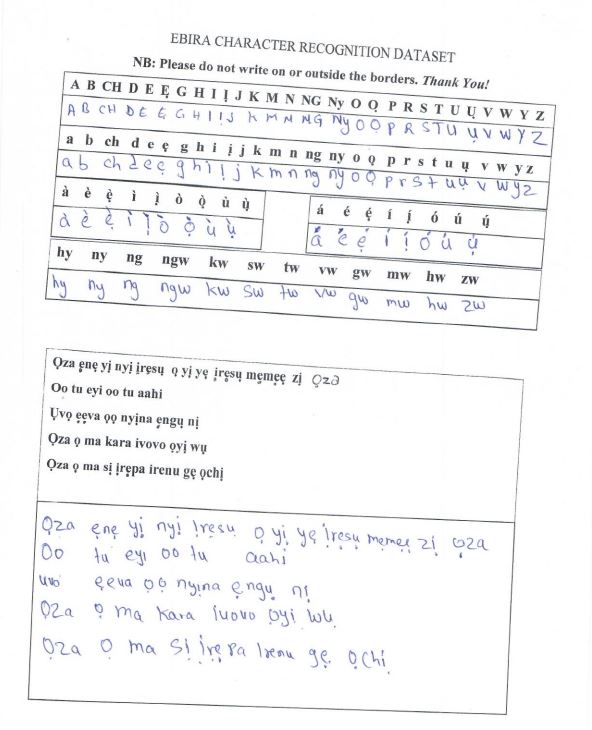 EBIRA CHARACTER RECOGNITION DATASET
NB: Please do not write on or outside the borders. Thank You!
A B CH D E Ẹ G H I Ị J K M N NG Ny O Ọ P R S T U Ụ V W Y Z
A B CH D E Ẹ G H I Ị J K M N NG Ny O Ọ P R S T U Ụ V W Y Z
a b ch d e ẹ g h i ị j k m n ng ny o ọ p r s t u ụ v w y z
a b ch d e ẹ g h i ị j k m n ng ny o ọ p r s t u ụ v w y z
à è ẹ̀ ì ị̀ ò ọ̀ ù ụ̀
à è ẹ̀ ì ị̀ ò ọ̀ ù ụ̀
á é ẹ́ í ị́ ó ú ụ́
á é ẹ́ í ị́ ó ú ụ́
hy ny ng ngw kw sw tw vw gw mw hw zw
hy ny ng ngw kw sw tw vw gw mw hw zw
Ọza ẹnẹ yị nyị ịrẹsụ ọ yị yẹ ịrẹsụ mẹmẹẹ zị Ọza
Oo tu eyi oo tu aahi
Ụvọ ẹẹva ọọ nyịna ẹngụ nị
Ọza ọ ma kara ivovo ọyị wụ
Ọza ọ ma sị ịrẹpa irenu gẹ ọchị
Ọza ẹnẹ yị nyị ịrẹsụ ọ yị yẹ ịrẹsụ mẹmẹẹ zị ọza
Oo tu eyi oo tu aahi
uvo ẹẹva ọọ nyịna ẹngụ nị
Ọza ọ ma kara ivovo ọyị wụ
Ọza ọ ma sị ịrẹpa irenu gẹ ọchị